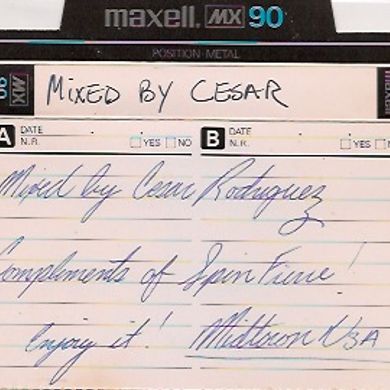 maxell. MX 90
POSITION·METAL
MX 90 MIXED BY CESAR maxell
A DATE N.R. YES NO B DATE N.R. YES NO
Mixed by Cesar Rodriguez
Compliments of Spin !
Enjoy it! Midtown USA